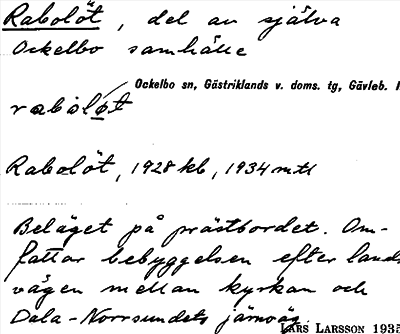 Rabolöt, del av själva
Ockelbo samhälle
Ockelbo sn, Gästriklands v. doms. tg, Gävleb.
Rabolöt, 1928 kb, 1934 mtl
Beläget på prästbordet. Om-
fattar bebyggelsen efter lands
vägen mellan kyrkan och
Dala-Norrsundets järnväg.
LARS LARSSON 1935